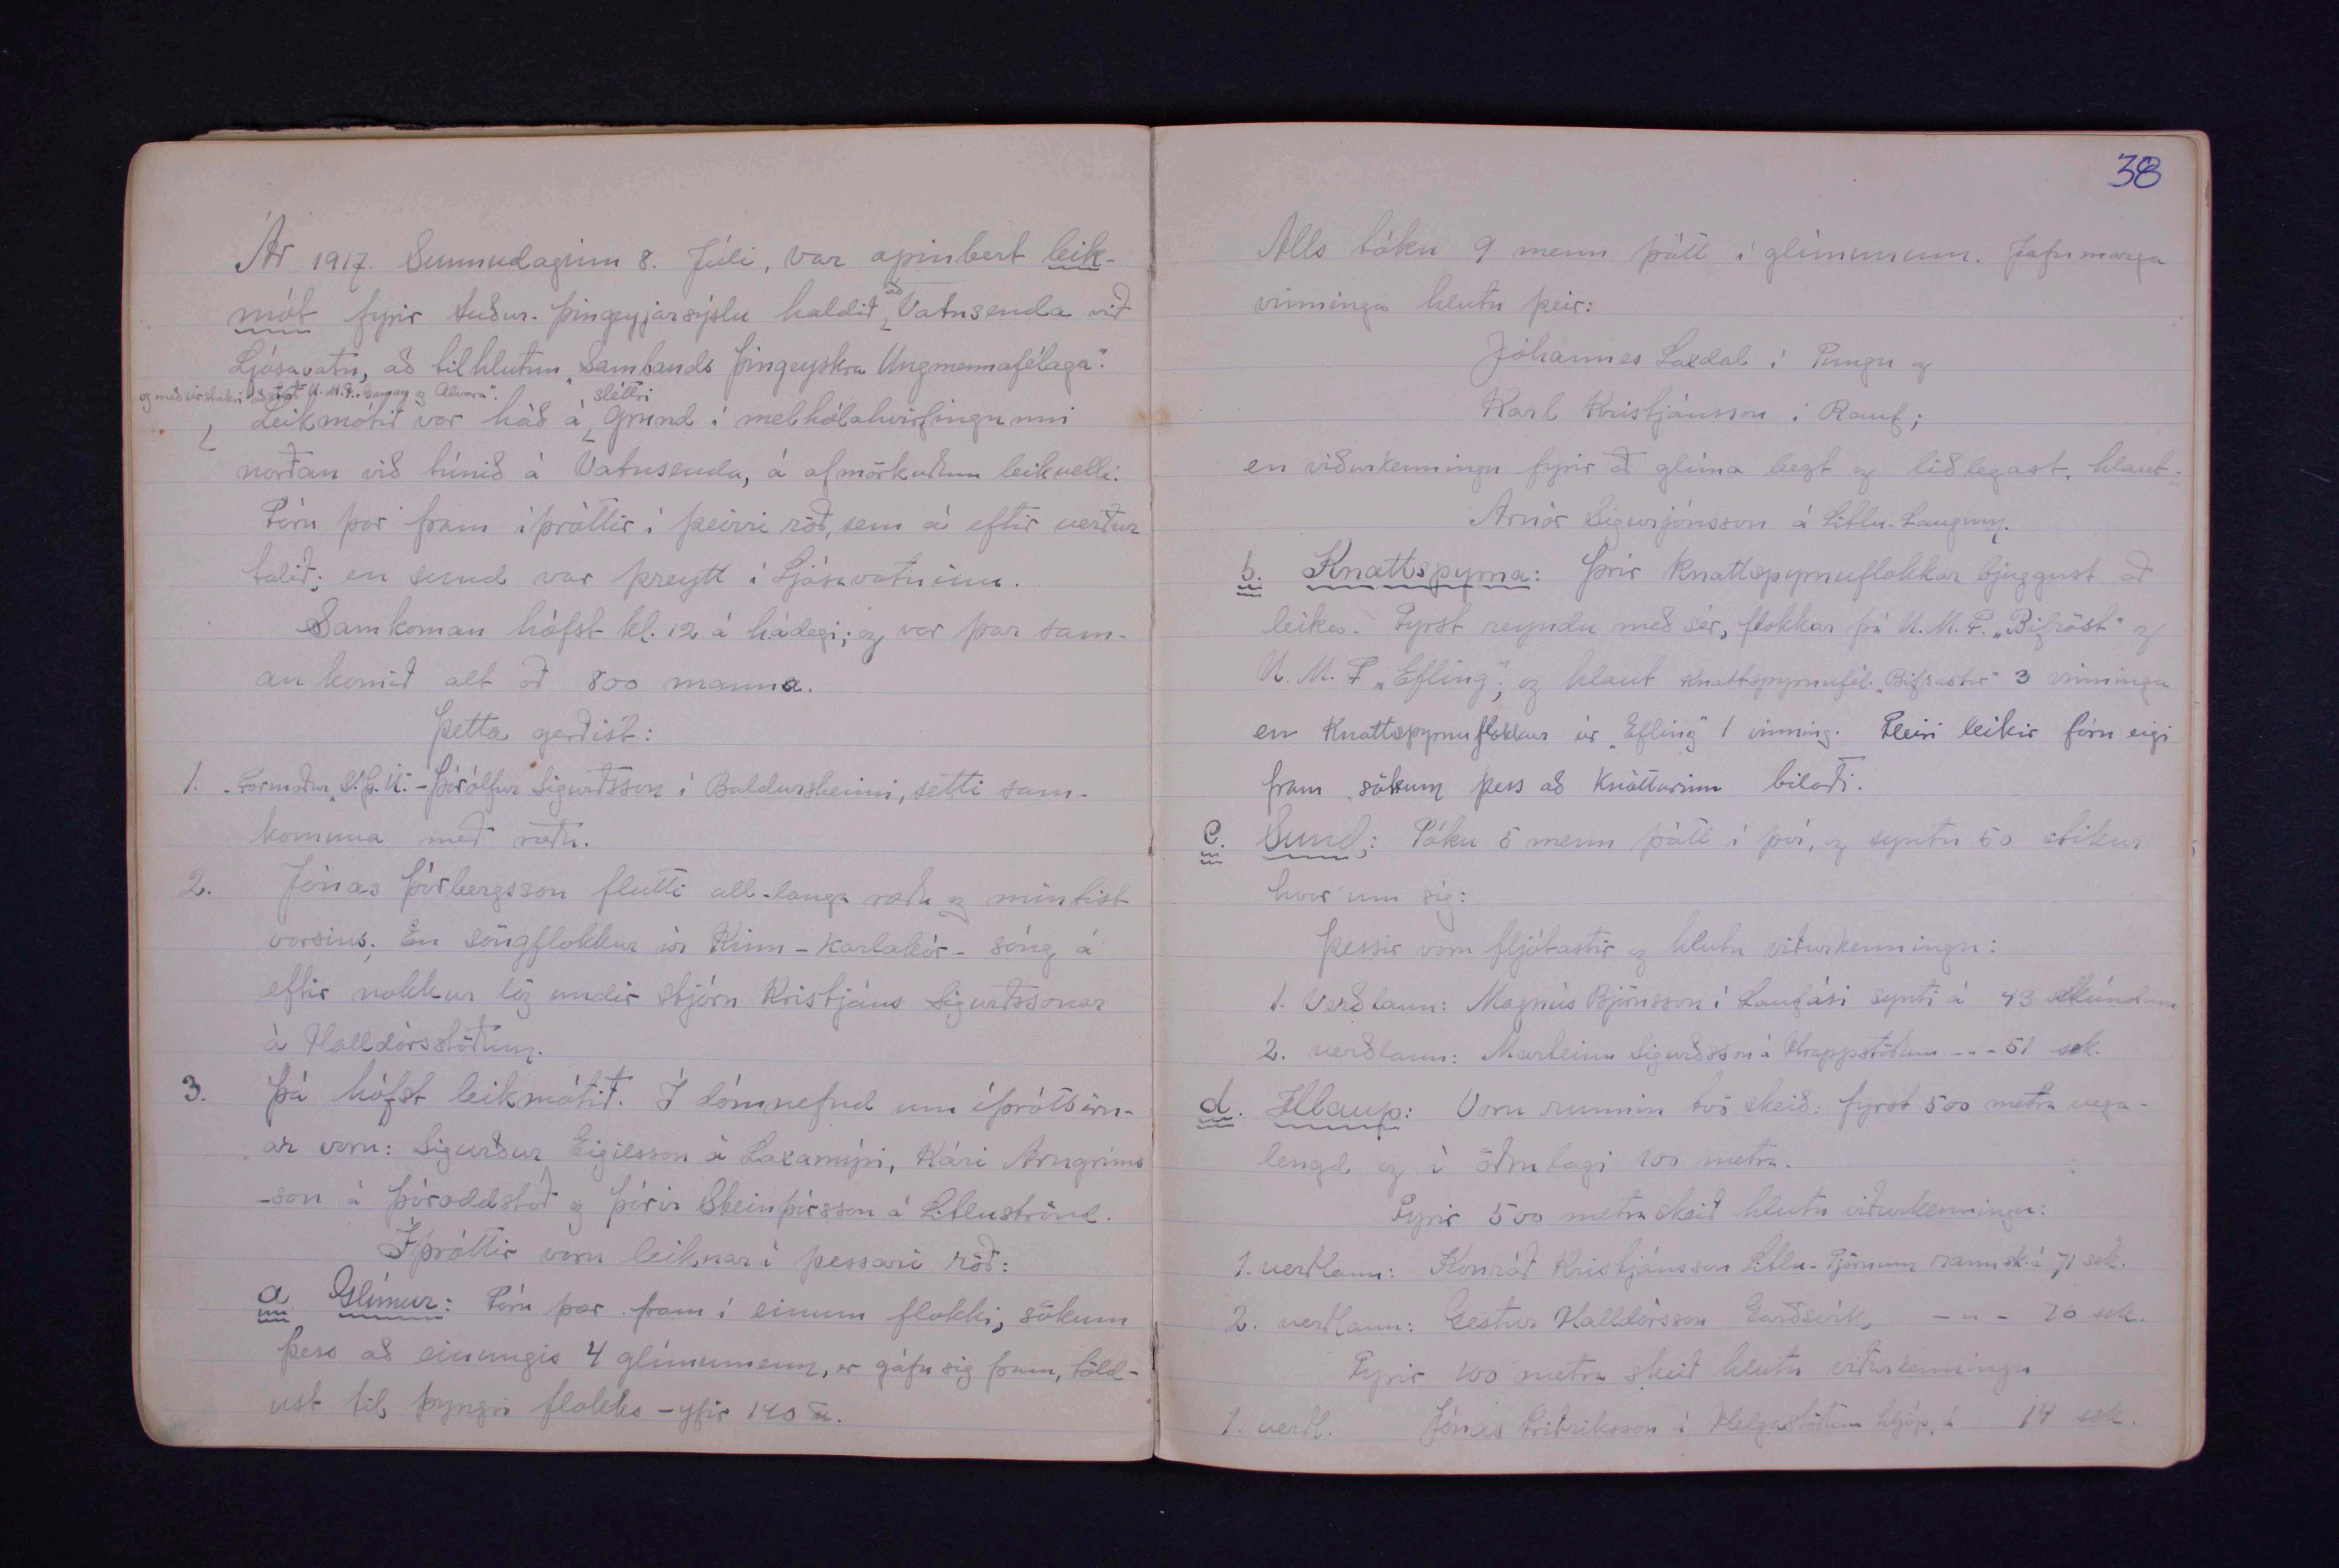 Ár 1917. Sunnudaginn 8. Júlí, var opinbert leik-
mót fyrir Suður-Þingeyjarsýslu haldið að Vatnsenda við
Ljósavatn, að tilhlutun „Sambands Þingeyskra Ungmennafélaga".
og með sérstakri aðstoð U.M.F. Gaman og Alvara".
Leikmótið var háð á sléttri grund í melhólahvirfingunni
norðan við túnið á Vatnsenda, á afmörkuðum leikvelli.
Fóru þar fram íþróttir í þeirri röð, sem á eftir verður
talið; en sund var þreytt í Ljósavatninu.
Samkoman hófst kl. 12 á hádegi; og var þar sam-
an komið alt að 800 manna.
Þetta gerðist:
1. Formaður „S.Þ.U." - Þórólfur Sigurðsson í Baldursheimi, setti sam-
komuna með ræðu.
2. Jónas Þorbergsson flutti all-langa ræðu og mintist
vorsins; En söngflokkur úr Kinn - Karlakór - söng á
eftir nokkur lög undir stjórn Kristjáns Sigurðssonar
á Halldórsstöðum.
3. Þá hófst leikmótið. Í dómnefnd um íþróttirn-
ar voru: Sigurður Egilsson á Laxamýri, Kári Arngríms
-son á Þóroddstað og Þórir Steinþórsson á Litluströnd.
Íþróttir voru leiknar í þessari röð:
a Glímur: Fóru þar fram í einum flokki, sökum
þess að einungis 4 glímumenn, er gáfu sig fram, töld-
ust til þyngri flokks - yfir 140 ℔.
38
Alls tóku 9 menn þátt í glímunum. Jafnmarga
vinninga hlutu þeir:
Jóhannes Laxdal í Tungu og
Karl Kristjánsson í Rauf;
en viðurkenningu fyrir að glíma bezt og liðlegast, hlaut-
Arnór Sigurjónsson á Litlu-Laugum.
b. Knattspyrna: Þrír knattspyrnuflokkar bjuggust að
leika. Fyrst reyndu með sér, flokkar frá U.M.F. „Bifröst" og
U.M.F „Efling"; og hlaut knattspyrnufél. „Bifrastar" 3 vinninga
en Knattspyrnuflokkur úr „Efling" 1 vinning. Fleiri leikir fóru eigi
fram sökum þess að Knötturinn bilaði.
c. Sund: Tóku 5 menn þátt í því, og syntu 50 stikur
hver um sig:
Þessir voru fljótastir og hlutu viðurkenningu:
1. Verðlaun: Magnús Björnsson í Laufási synti á 43 sekúndum
2. verðlaun: Marteinn Sigurðsson á Hrappstöðum - - - 51 sek.
d. Hlaup: Voru runnin tvö skeið: fyrst 500 metra vega-
lengd og í öðru lagi 100 metra.
Fyrir 500 metra skeið hlutu viðurkenningu:
1. verðlaun: Konráð Kristjánsson Litlu-Tjörnum rann sk. á 71 sek.
2. verðlaun: Gestur Halldórsson Garðsvík - " - 70 sek.
Fyrir 100 metra skeið hlutu viðurkenningu
1. verðl. Jónas Friðriksson á Helgastöðum hljóp á 14 sek.